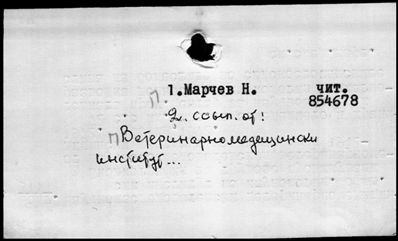 1.Марчев Н. чит.
854678
2. съст. от:
П Ветеринарномедецински
институт...